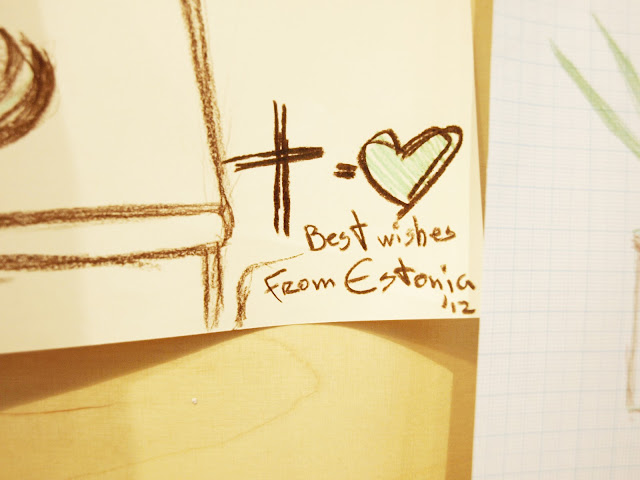 =
Best wishes
From Estonia
'12